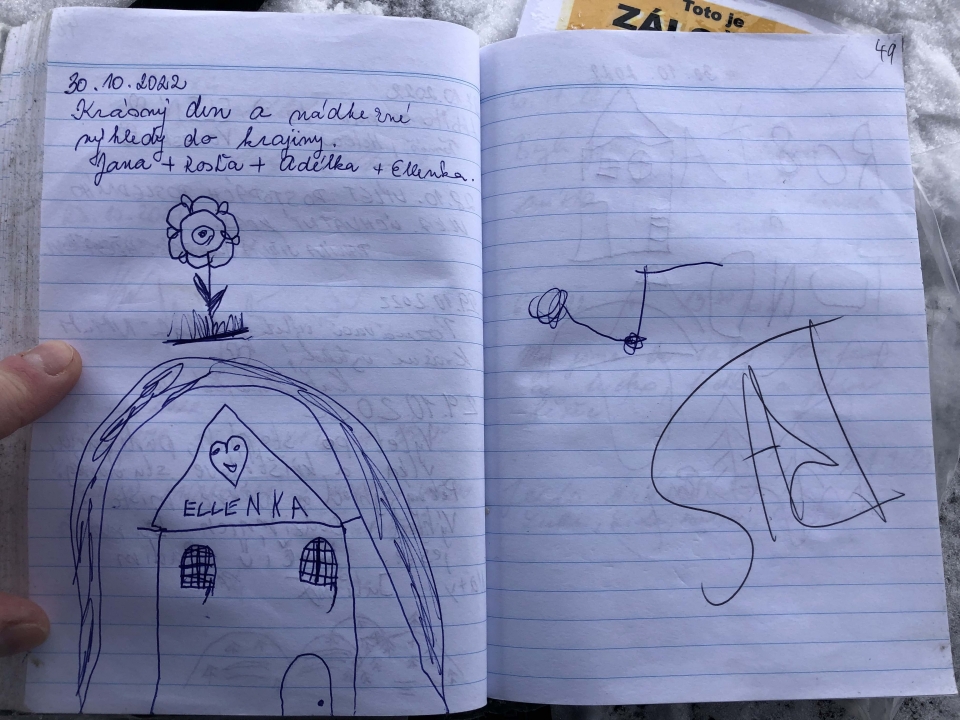 30.10.2022
Krásný den a nádherné
výhledy do krajiny.
Jana + Rosťa + Adélka + Ellenka.
ELLENKA
Toto je
49